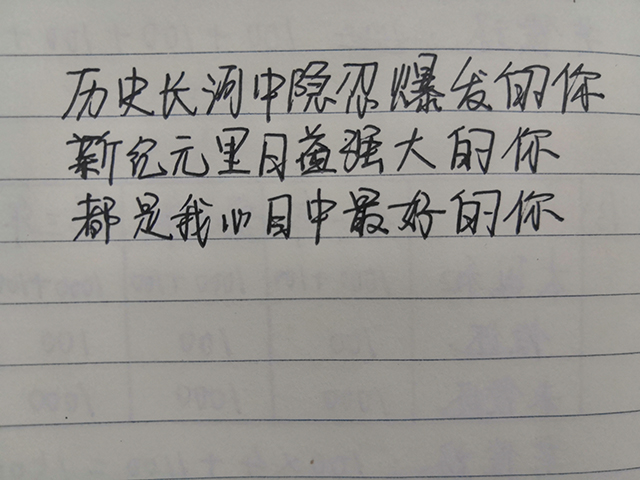 历史长河中隐忍爆发的你
新纪元里日益强大的你
都是我心目中最好的你